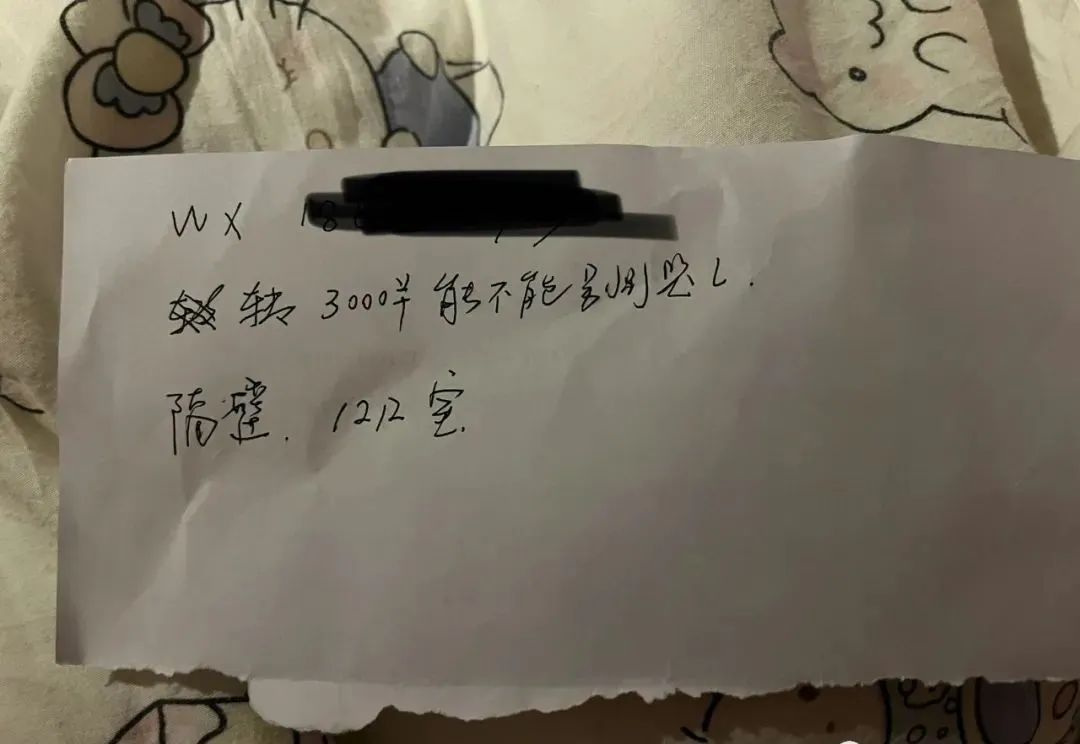 WX 18
转 3000半能不能别哭了.
隔壁. 1212室